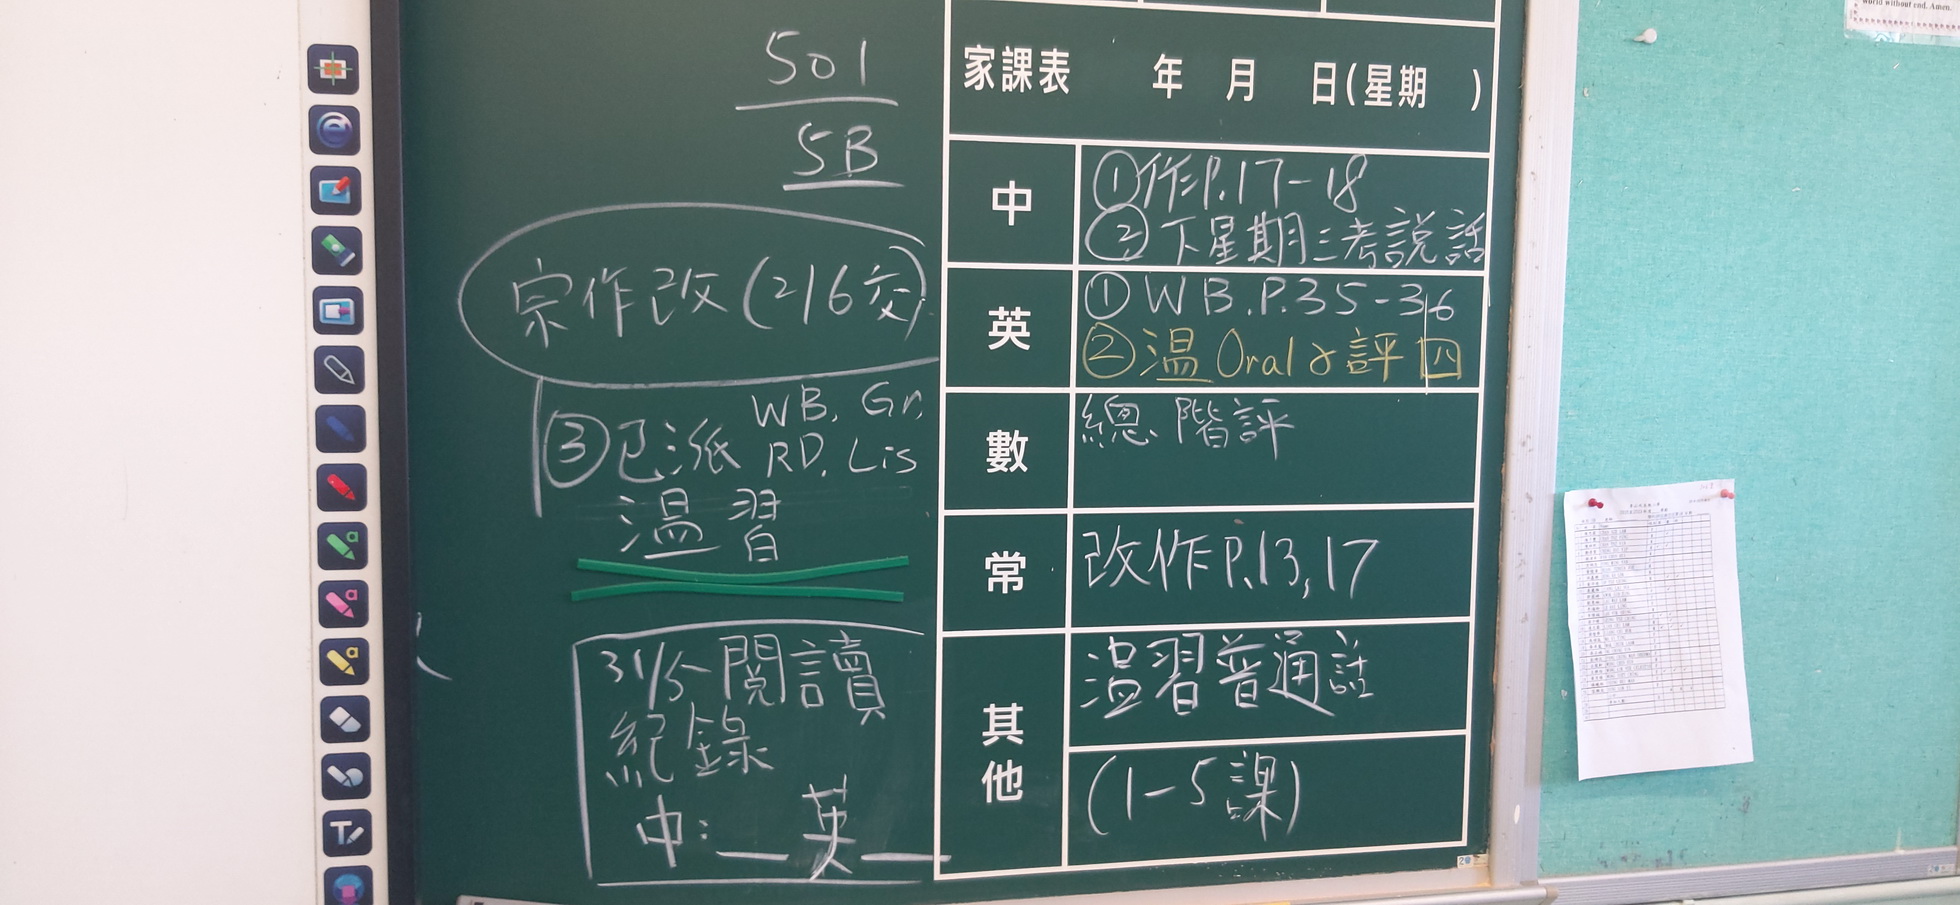 world without end. Amen.
501
5B
家課表 年 月 日(星期 )
中
①作P.17-18
②下星期三考説話
英
①WB.P.35-36
②温 Oral & 評四
數
總階評
常
改作P.13,17
其他
温習普通話
(1-5課)
宗作改(2/6交)
③已派 WB, Gr,
RD, Lis
温習
31/5 閲讀
紀錄
中:__英__